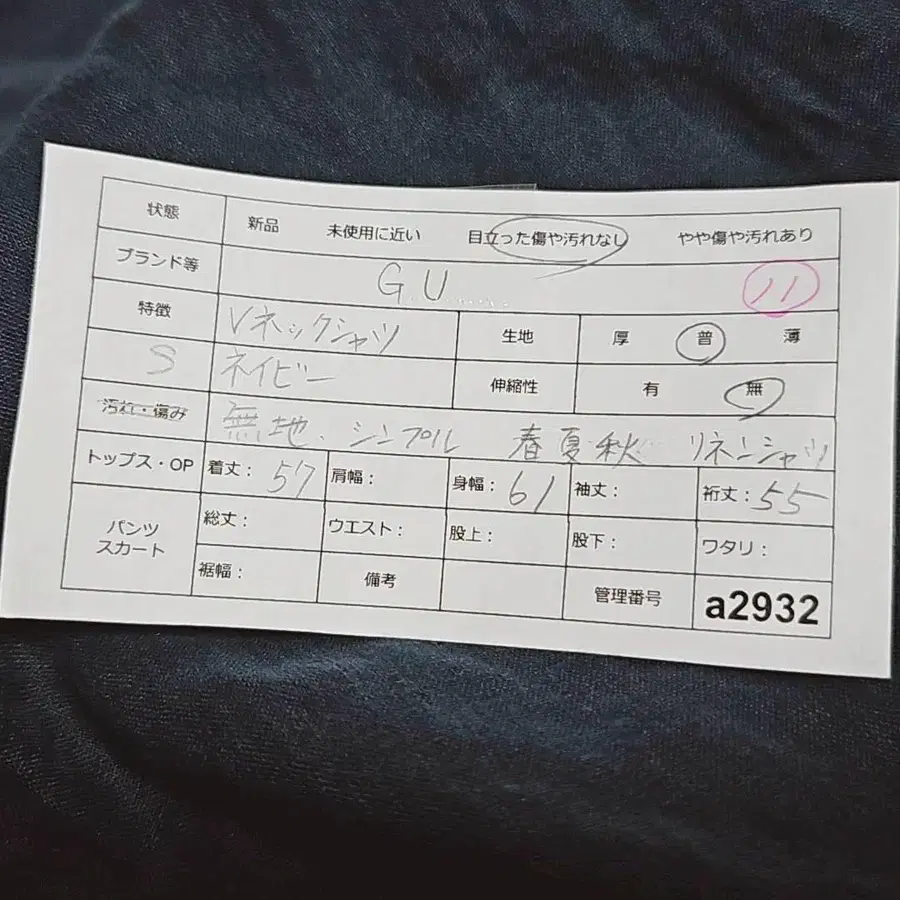 状態 新品 未使用に近い 目立った傷や汚れなし やや傷や汚れあり
ブランド等 G.U. 11
特徴 Vネックシャツ 生地 厚 普 薄
S ネイビー 伸縮性 有 無
汚れ・傷み 無地、シンプル 春夏秋 リネンシャツ
トップス・OP 着丈: 57 肩幅: 身幅: 61 袖丈: 裄丈: 55
パンツ スカート 総丈: ウエスト: 股上: 股下: ワタリ:
裾幅: 備考 管理番号 a2932